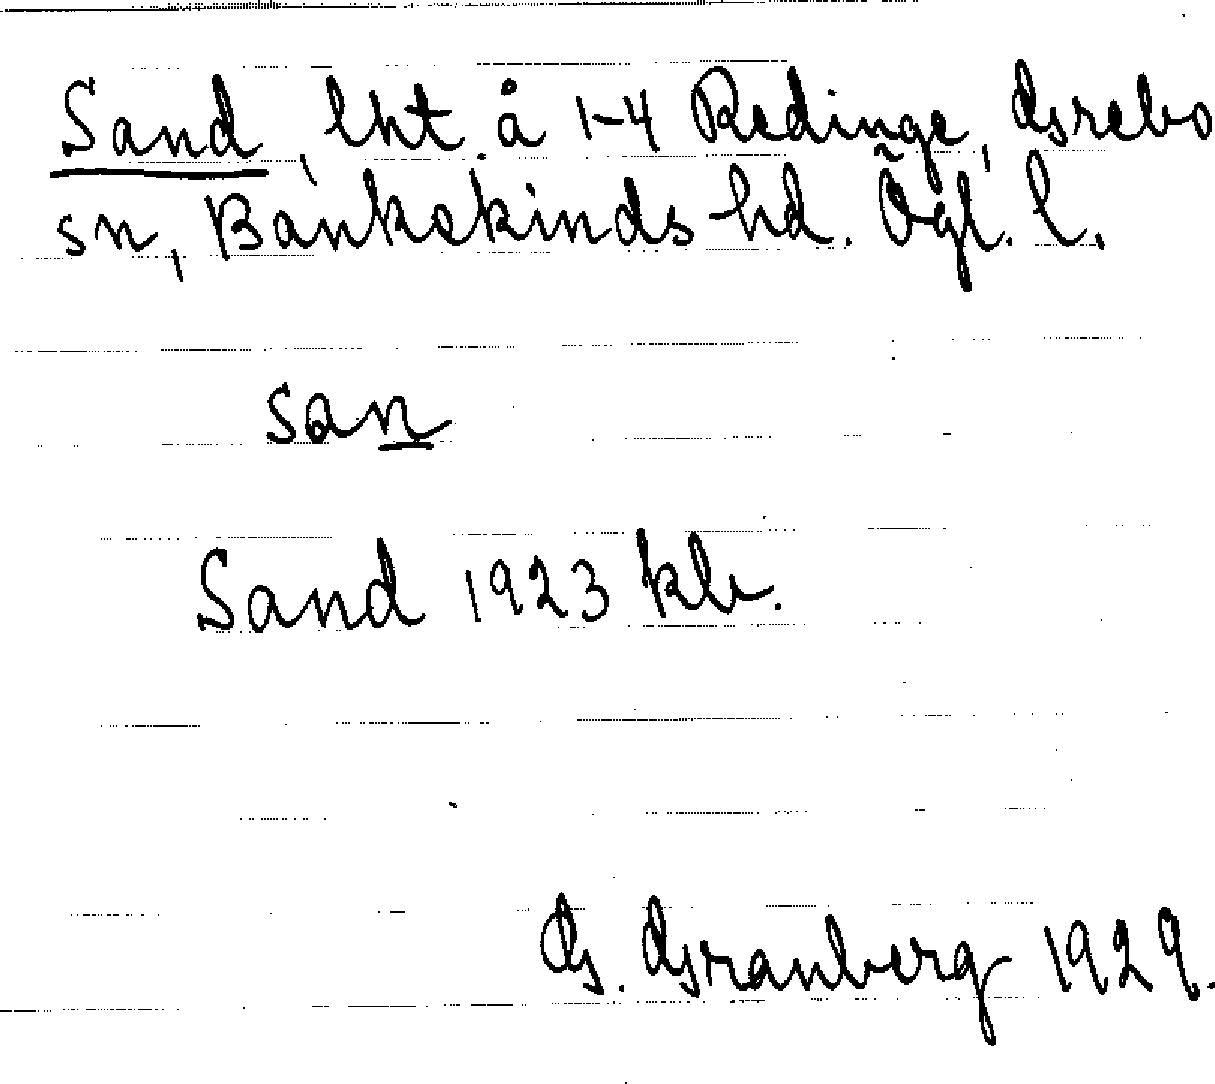 Sand, lht. å 1-4 Redinge, Grebo
sn, Bankekinds hd. Ögl. l.
san
Sand 1923 kb.
G. Granberg 1929.